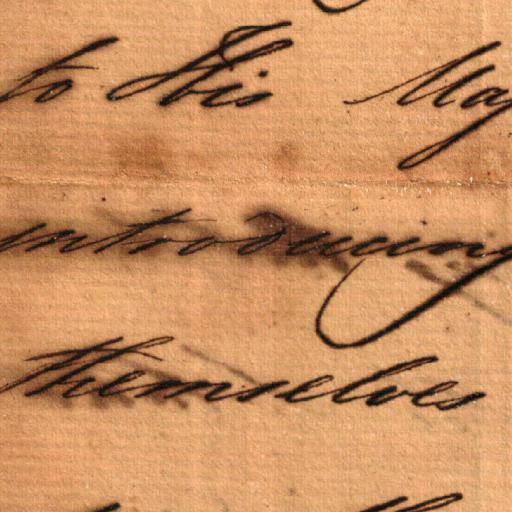 to His May
introducing
themselves